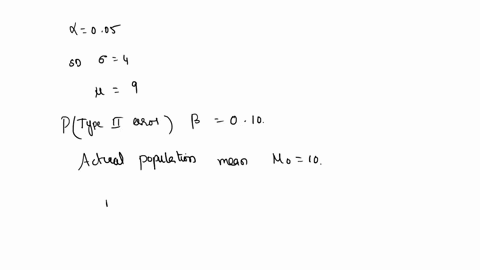 α = 0.05
SD σ = 4
μ = 9
P(Type II error) β = 0.10.
Actual population mean μ₀ = 10.